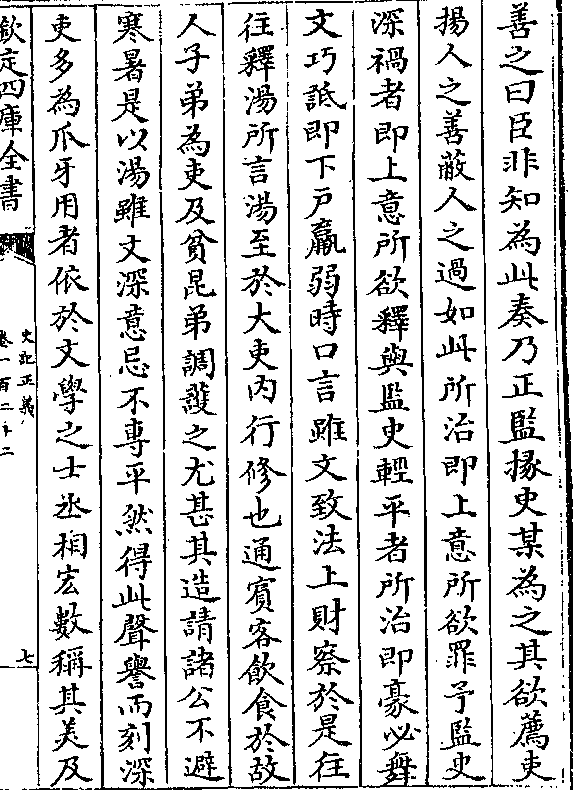 善之曰臣非知為此奏乃正監掾史某為之其欲薦吏
揚人之善蔽人之過如此所治即上意所欲罪予監史
深禍者即上意所欲釋與監史輕平者所治即豪必舞
文巧詆即下戶羸弱時口言雖文致法上財察於是往
往釋湯所言湯至於大吏内行修也通賓客飲食於故
人子弟為吏及貧昆弟調護之尤甚其造請諸公不避
寒暑是以湯雖文深意忌不專平然得此聲譽而刻深
吏多為爪牙用者依於文學之士丞相宏數稱其美及
欽定四庫全書
史記正義
卷一百二十二
七